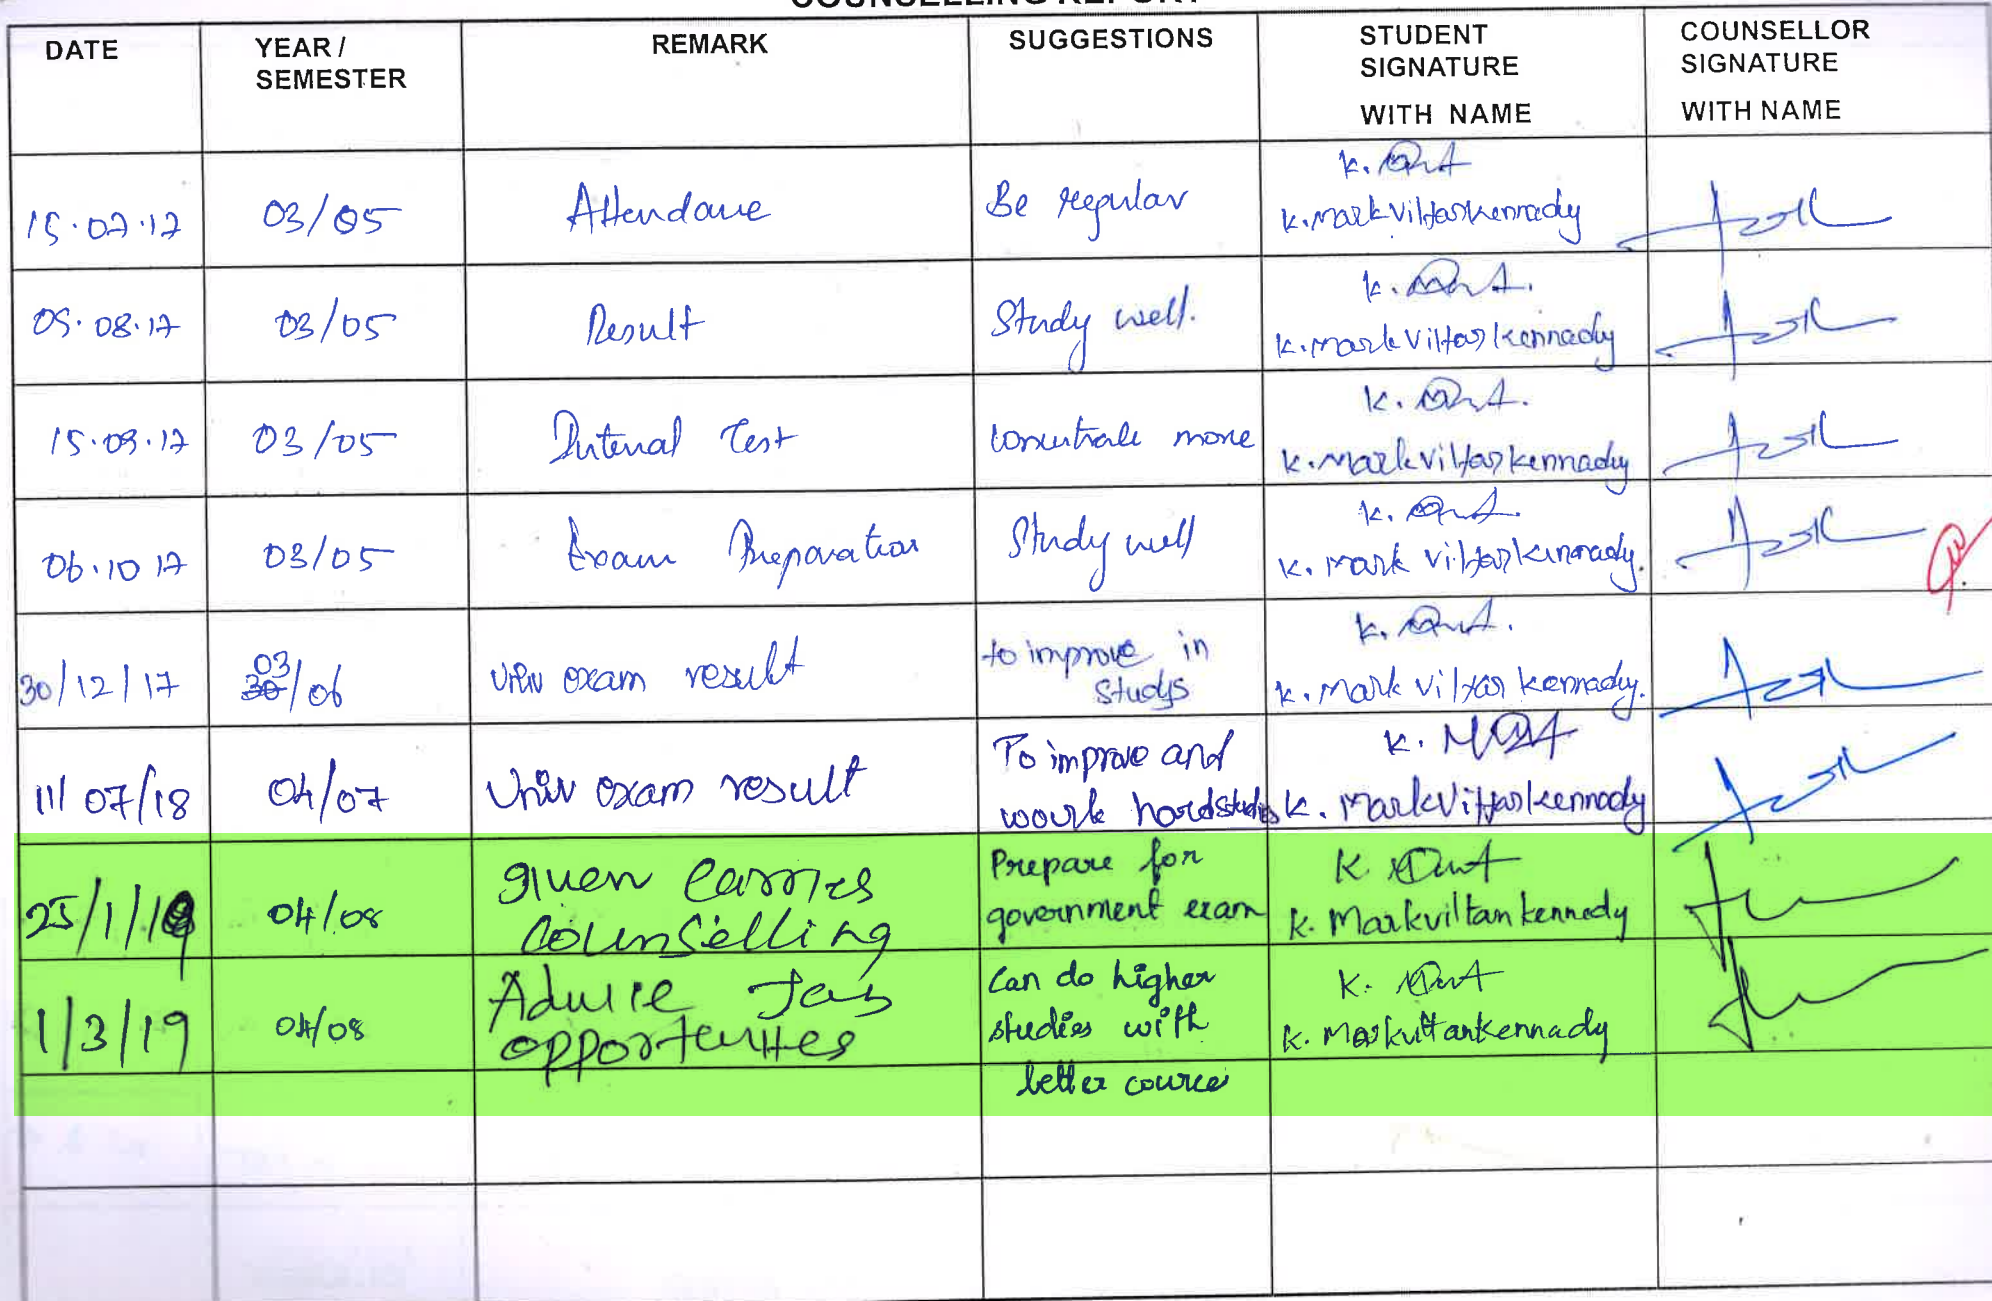 COUNSELLING REPORT
DATE
YEAR /
SEMESTER
REMARK
SUGGESTIONS
STUDENT
SIGNATURE
WITH NAME
COUNSELLOR
SIGNATURE
WITH NAME
15.07.17
03/05
Attendance
Be regular
K.
K. Mark
05.08.17
03/05
Result
Study well.
K.
K. Mark Kennady
15.09.17
03/05
Internal Test
Concentrate more
K.
K. Mark Kennady
06.10 17
03/05
Exam Preparation
Study well
K.
K. Mark
30/12/17
03
30/06
Univ exam result
to improve in
studys
K.
K. Mark Kennady.
11/07/18
04/07
Univ exam result
To improve and
work hard studies
K.
K. Mark
25/1/19
04/08
given
Counselling
Prepare for
government exam
K.
K. Markviltan kennedy
1/3/19
04/08
Job
opportunities
Can do higher
studies with
better course
K.
K. Kennady